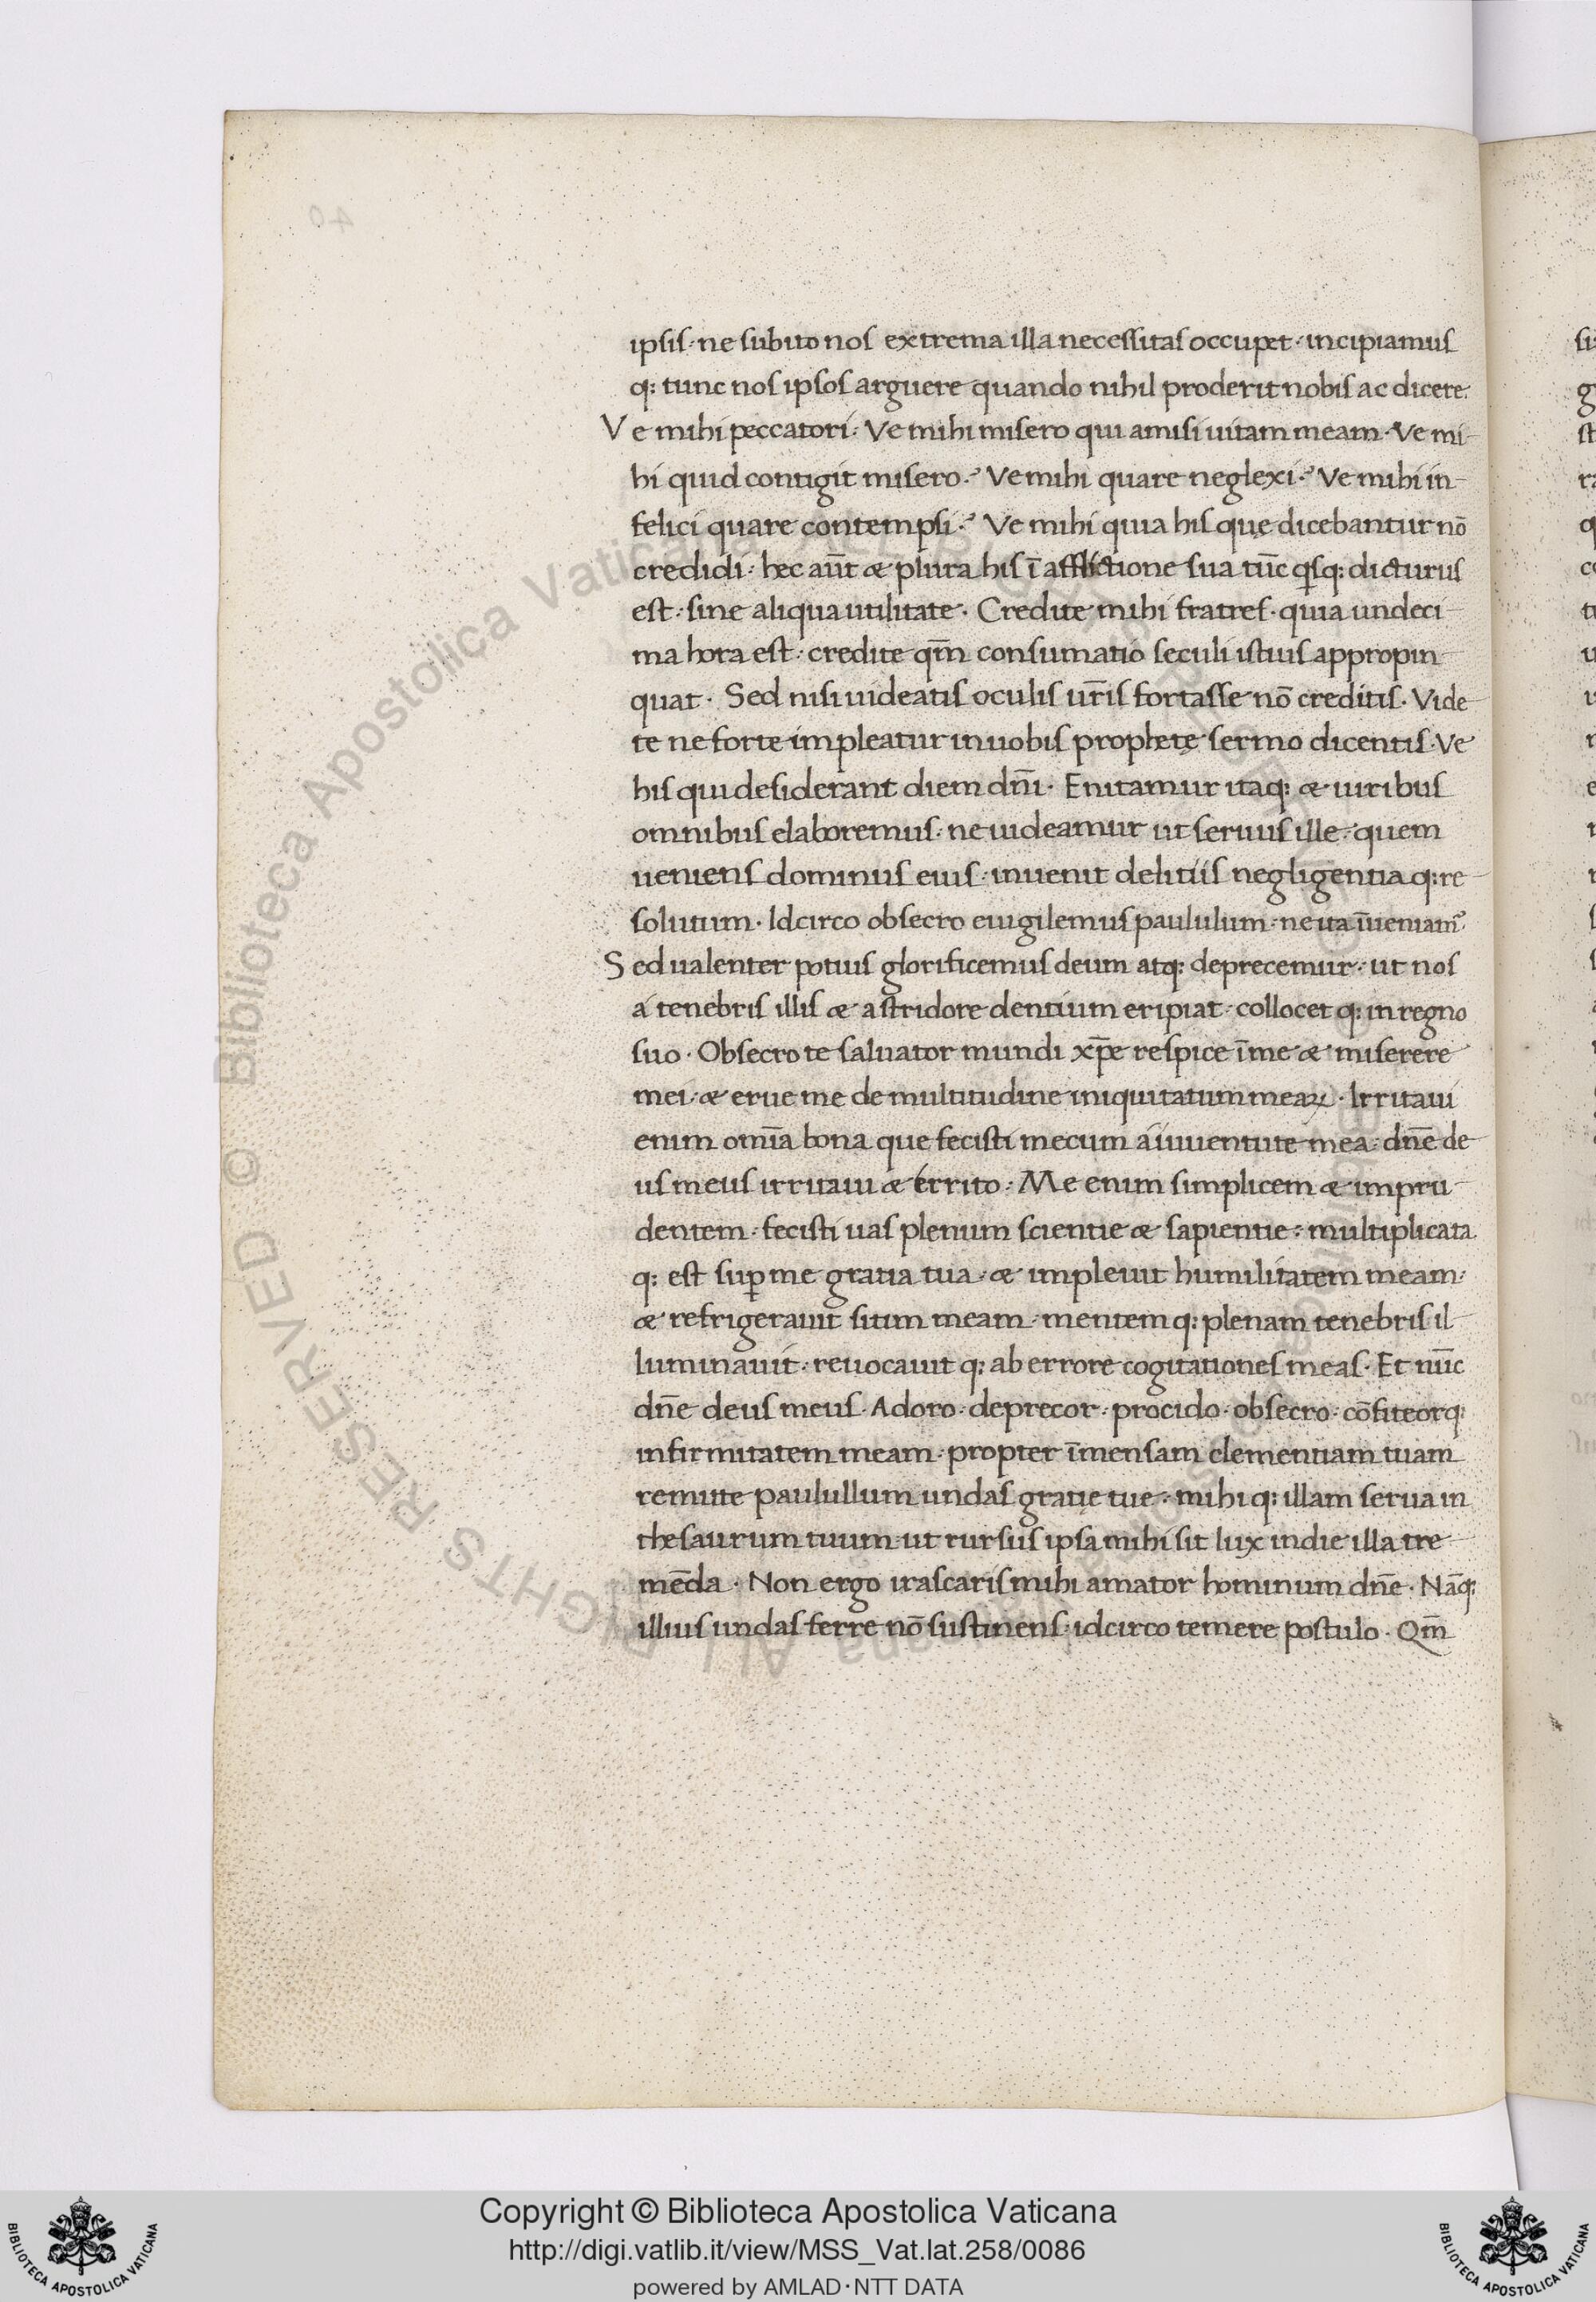 ipsis · ne subito nos extrema illa necessitas occupet · incipiamus
q: tunc nos ipsos arguere quando nihil proderit nobis ac dicere.
Ve mihi peccatori · Ve mihi misero qui amisi uitam meam · Ve mi-
hi quid contigit misero ·? Ve mihi quare neglexi ·? Ve mihi in-
felici quare contempsi ·? Ve mihi quia his que dicebantur nō
credidi · hec aūt & plura his ī afflictione sua tūc qisq: dicturus
est · sine aliqua utilitate · Credite mihi fratres · quia undeci-
ma hora est · credite qm̄ consumatio seculi istius appropin-
quat · Sed nisi uideatis oculis ur̄is fortasse nō creditis · Vide-
te ne forte impleatur in uobis prophetę sermo dicentis · Ve
his qui desiderant diem dn̄i · Enitamur itaq: & uiribus
omnibus elaboremus · ne uideamur ut seruus ille · quem
ueniens dominus eius · inuenit delitiis negligentia q: re-
solutum · Idcirco obsecro euigilemus paululum · ne ita īueniam᷒
Sed ualenter potius glorificemus deum atq: deprecemur · ut nos
á tenebris illis & a stridore dentium eripiat · collocet q: in regno
suo · Obsecro te saluator mundi xp̄e respice ī me & miserere
mei · & erue me de multitudine iniquitatum meaꝝ · Irritaui
enim om̄ia bona que fecisti mecum á iuuentute mea · dn̄e de-
us meus irritaui & érrito · Me enim simplicem & impru-
dentem · fecisti uas plenum scientie & sapientie · multiplicata
q: est suꝑ me gratia tua · & impleuit humilitatem meam ·
& refrigerauit sitim meam · mentem q: plenam tenebris il-
luminauit · reuocauit q: ab errore cogitationes meas · Et nūc
dn̄e deus meus · Adoro · deprecor · procido · obsecro · cōfiteorq:
infirmitatem meam · propter īmensam clementiam tuam
remitte paulullum undas gratię tue · mihi q: illam serua in
thesaurum tuum · ut rursus ipsa mihi sit lux in die illa tre-
mēda · Non ergo irascaris mihi amator hominum dn̄e · Nāq:
illius undas ferre nō sustinens · idcirco temere postulo · Qm̄
Biblioteca Apostolica Vaticana
ALL RIGHTS RESERVED ©
Copyright © Biblioteca Apostolica Vaticana
http://digi.vatlib.it/view/MSS_Vat.lat.258/0086
powered by AMLAD·NTT DATA
BIBLIOTECA APOSTOLICA VATICANA
BIBLIOTECA APOSTOLICA VATICANA